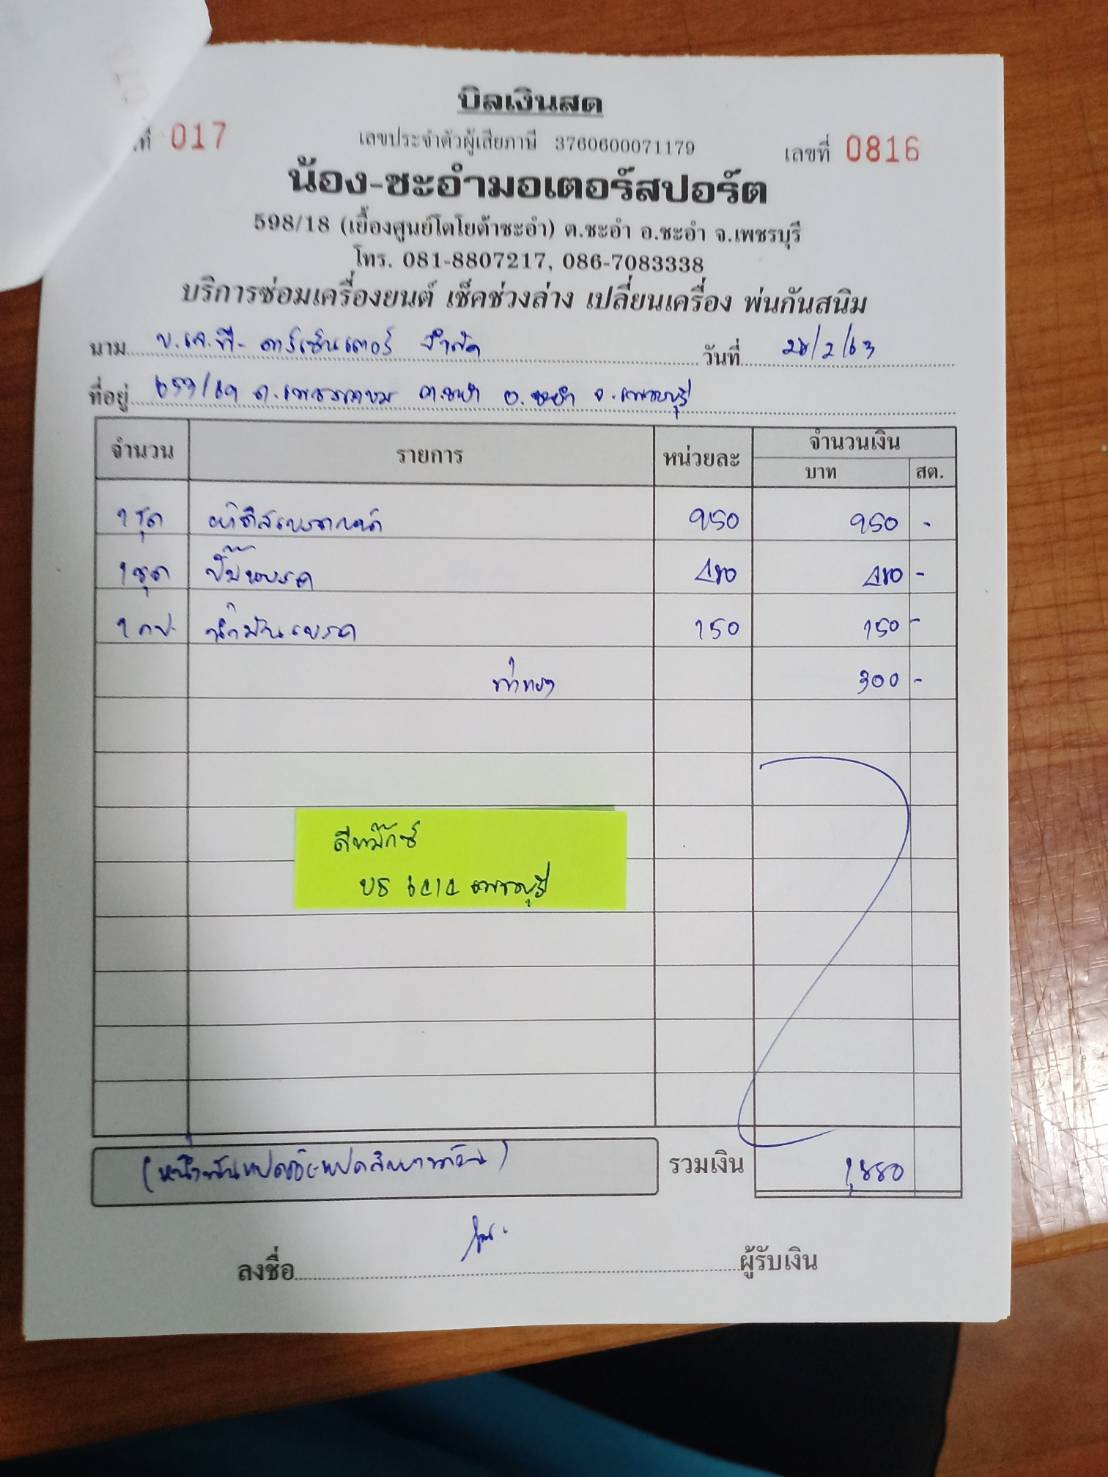 บิลเงินสด
ที่ 017
เลขประจำตัวผู้เสียภาษี 3760600071179
เลขที่ 0816
น้อง-ชะอำมอเตอร์สปอร์ต
598/18 (เยื้องศูนย์โตโยต้าชะอำ) ต.ชะอำ อ.ชะอำ จ.เพชรบุรี
โทร. 081-8807217, 086-7083338
บริการซ่อมเครื่องยนต์ เช็คช่วงล่าง เปลี่ยนเครื่อง พ่นกันสนิม
นาม คาร์เซ็นเตอร์ จำกัด วันที่ 28/2/63
ที่อยู่ ถ.เพชรเกษม ต.ชะอำ อ.ชะอำ จ.เพชรบุรี
จำนวน รายการ หน่วยละ จำนวนเงิน
บาท สต.
1 ชุด 950 950 -
1 ชุด 480 480 -
1 กป. น้ำมันเบรค 150 150 -
300 -
ทะเบียน
เพชรบุรี
รวมเงิน 1,880
(หนึ่งพันแปดร้อยแปดสิบบาทถ้วน)
ลงชื่อ ผู้รับเงิน